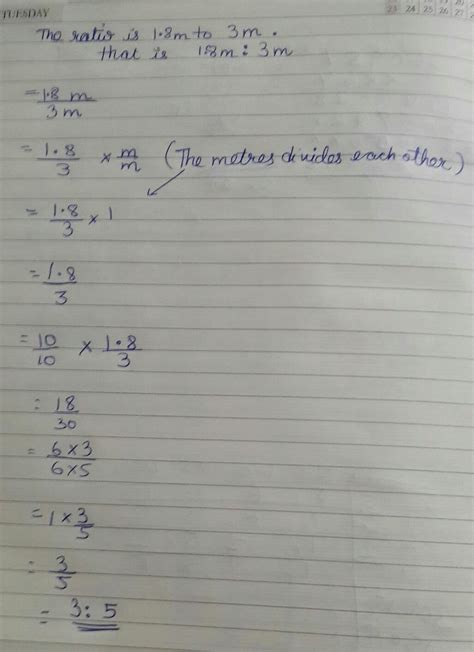 TUESDAY
23 24 25 26
The ratio is 1.8m to 3m.
that is 18m : 3m
= 1.8 m / 3 m
= 1.8/3 × m/m (The metres divides each other)
= 1.8/3 × 1
= 1.8/3
= 10/10 × 1.8/3
= 18/30
= 6×3/6×5
= 1 × 3/5
= 3/5
= 3 : 5